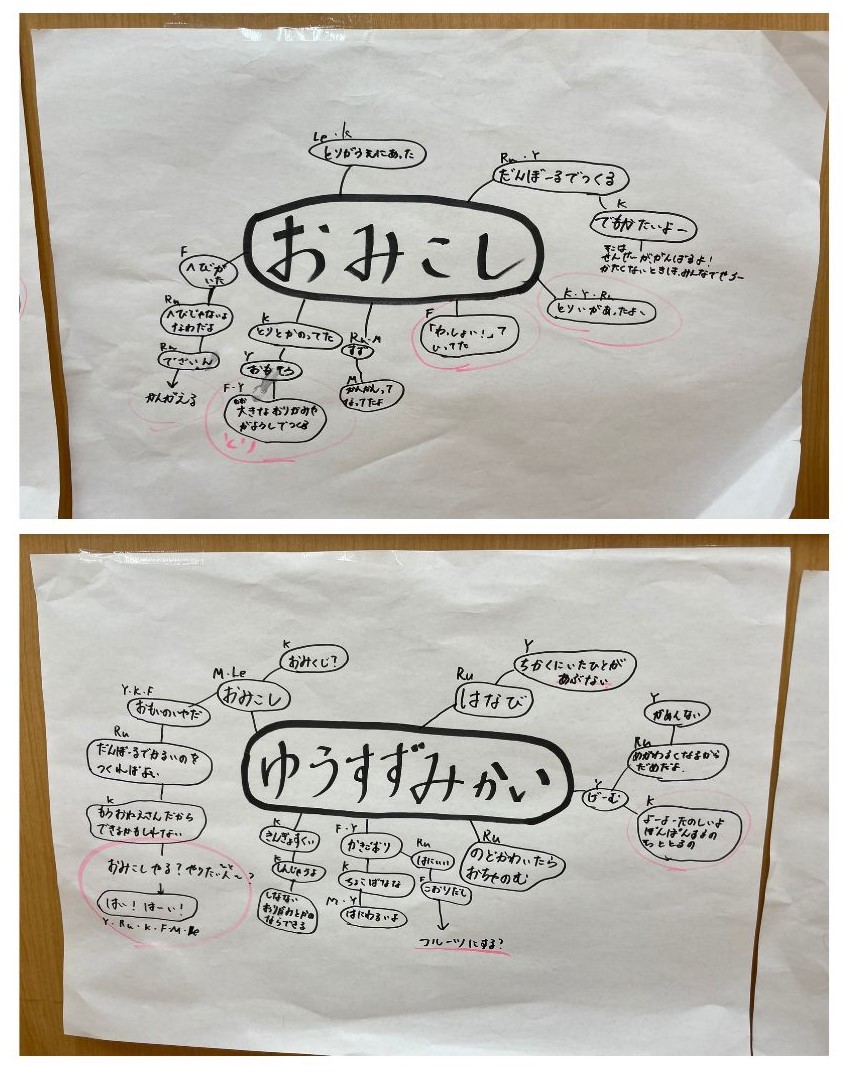 Le・k
とりがうえにあった
Ru・Y
だんぼーるでつくる
K
でもかたいよー
せんせーががんばるよ!
かたくないときは、みんなでやろー
おみこし
F
へびが
いた
Ru
へびじゃないよ
なわだよ
Ru
でざいん
かんがえる
K
とりとかのってた
Y
F・Y
大きなおりがみや
がようしでつくる
とり
Ru・M
すず
M
かんかんって
なってたよ
F
「わっしょい!」て
いってた
K・Y・Ru
とりいがあったよ、
K
おみくじ?
M・Le
おみこし
Y・K・F
おもいのいやだ
Ru
だんぼーるでかるいのを
つくればよい
K
もうおねえさんだから
できるかもしれない
おみこしやる?やりたい人〜?
はい!はーい!
Y・Ru・K・F・M・Le
Y
ちかくにいたひとが
あぶない
Ru
はなび
ゆうすずみかい
Y
げーむ
Ru
めがわるくなるから
だめだよ
Y
がめんない
K
よーよーたのしいよ
ぼんぼんするの
K
きんぎょすくい
K
しんじゃうよ
しなない
おりがみとかの
ならできる
F・Y
かきごおり
K
ちょこばなな
M・Y
はにわるいよ
Ru
はにいい
F
こおりだし
フルーツにする?
Ru
のどかわいたら
おちゃのむ